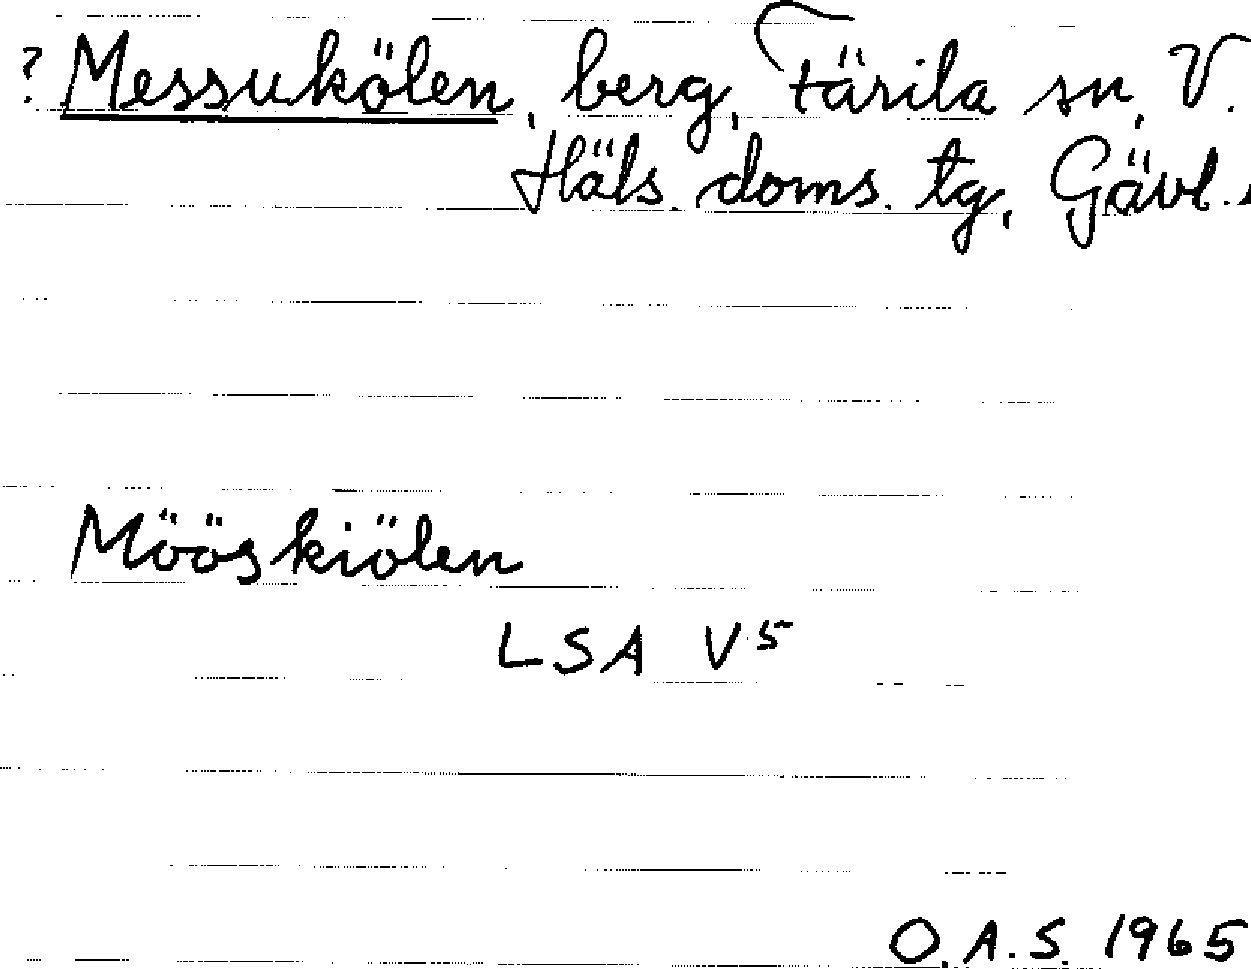 ? Messukölen, berg, Färila sn, V.
Häls. doms. tg, Gävl..
Mööskiölen
LSA V5
O.A.S. 1965